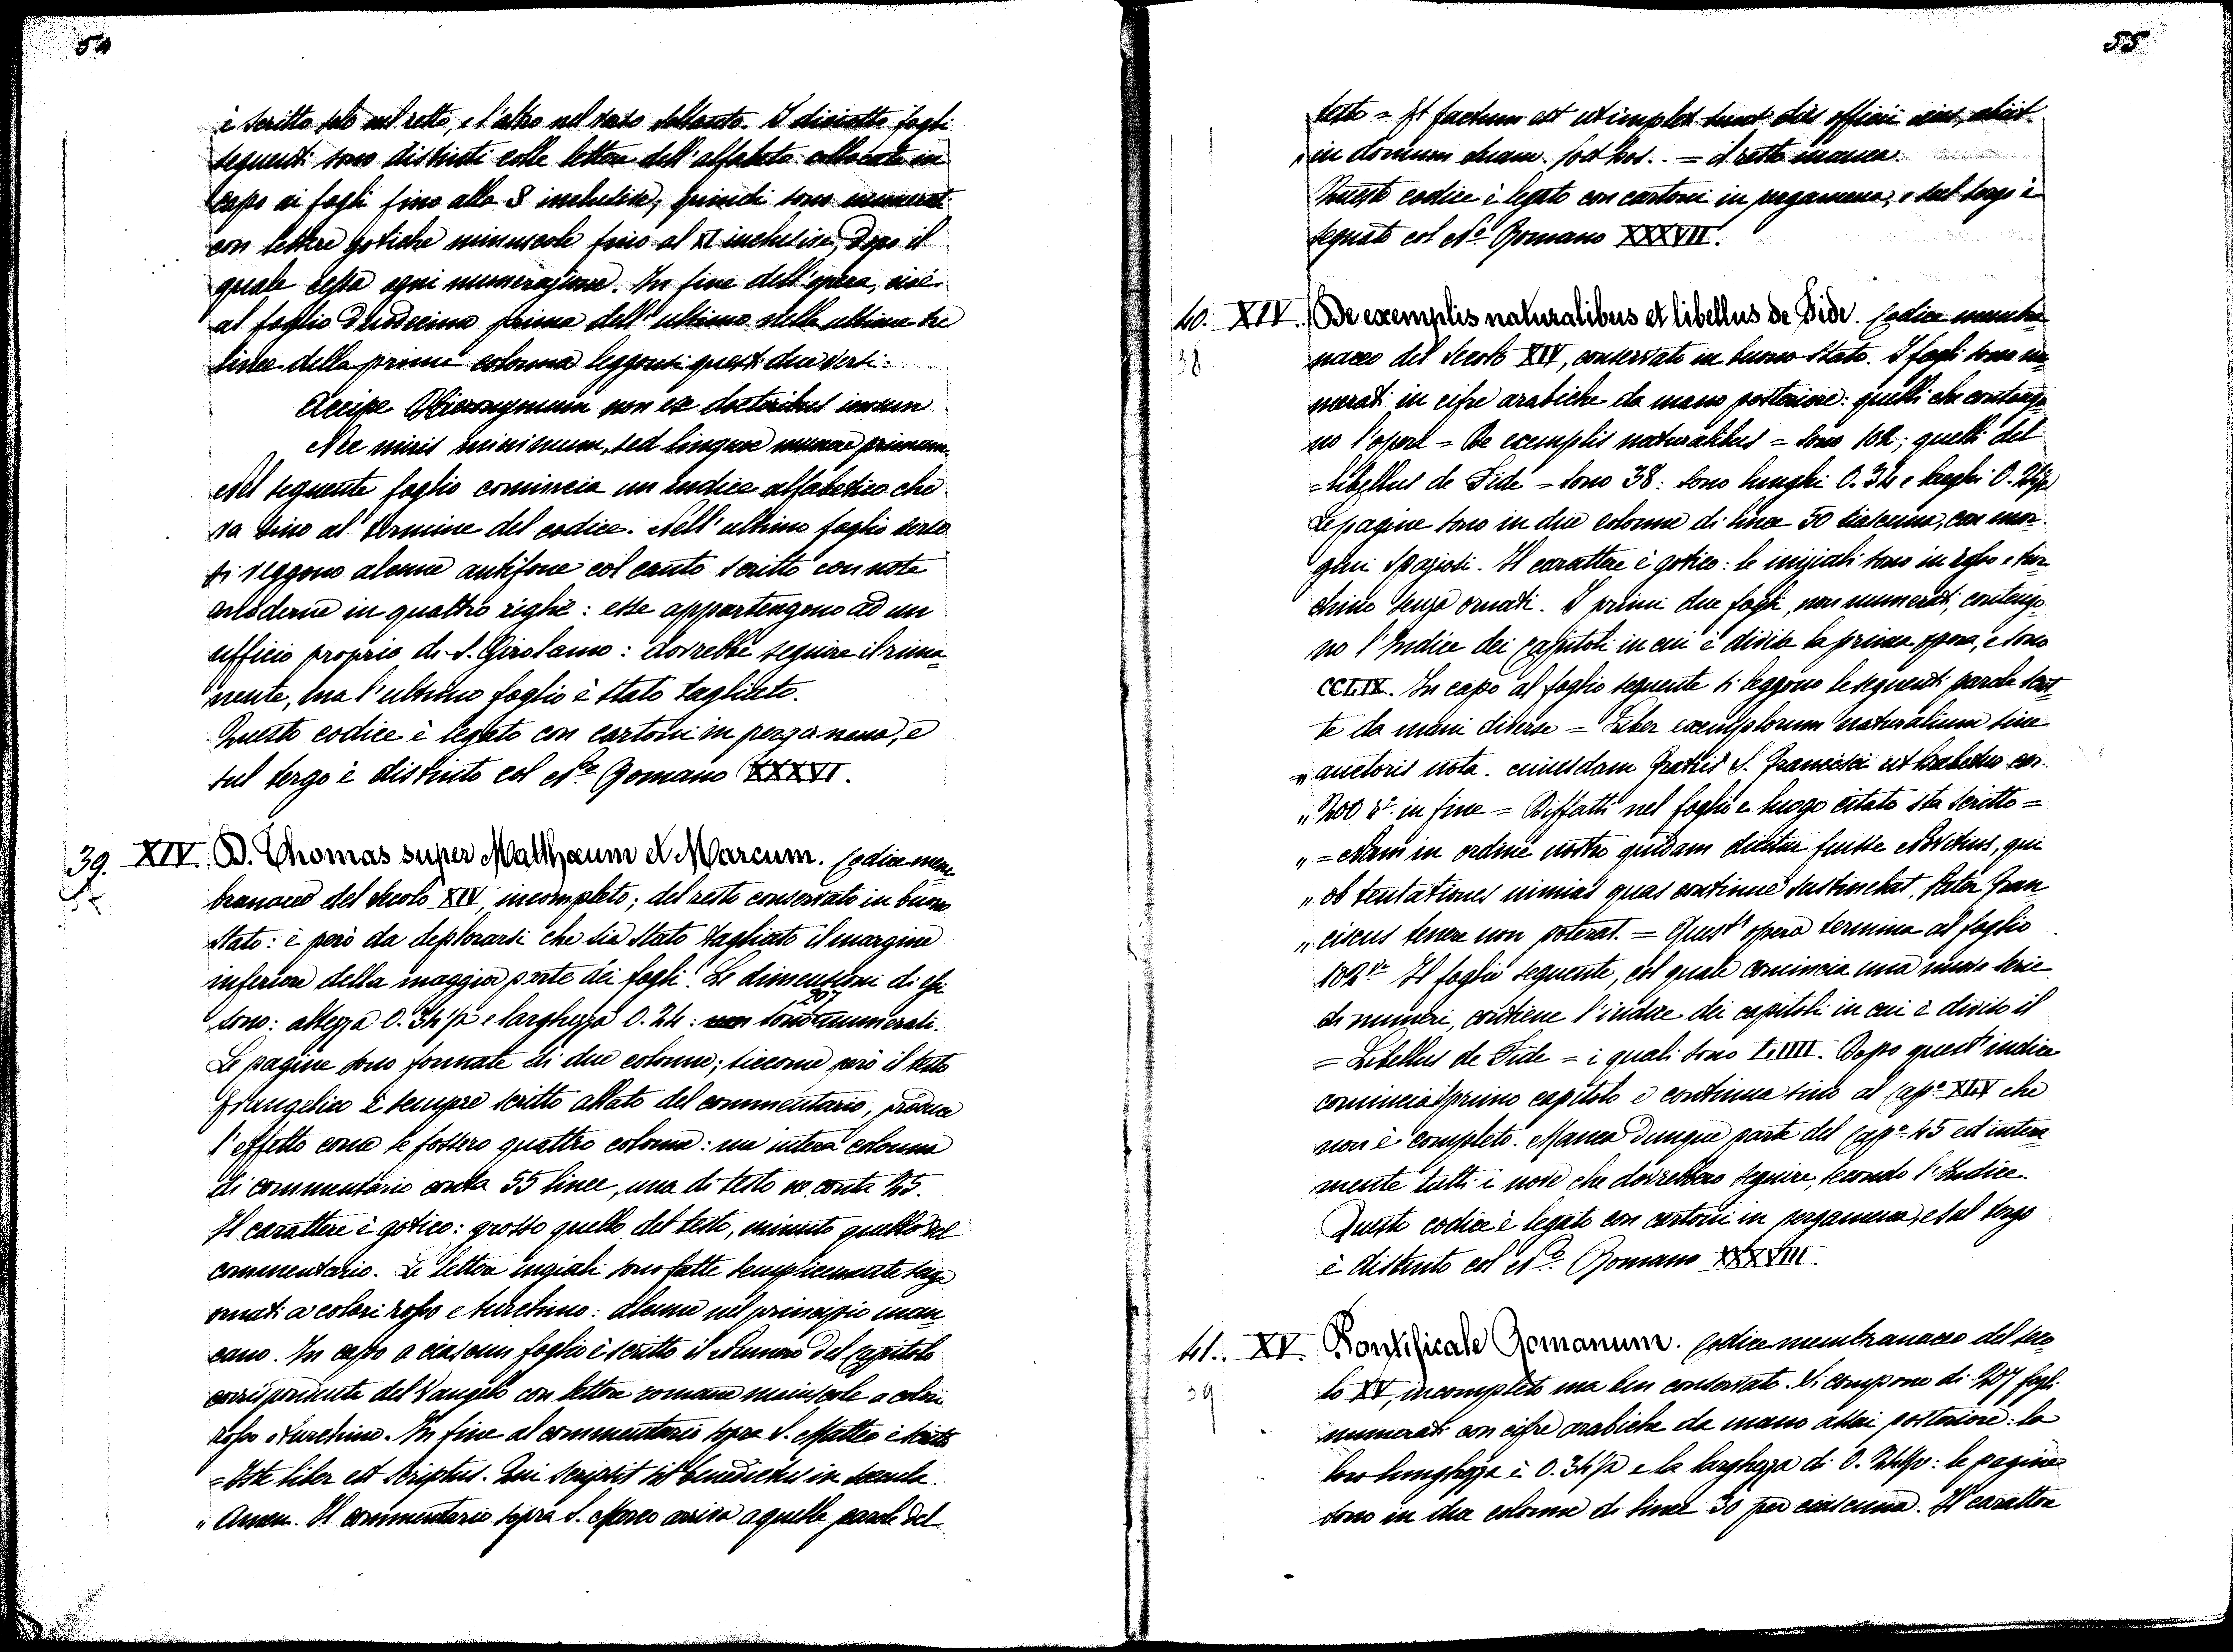 54
è scritto solo nel retto, e l'altro nel verso soltanto. I diciotto fogli
seguenti sono distinti colle lettere dell'alfabeto collocate in
capo ai fogli fino alla S inclusive, quindi sono numerati
con lettere gotiche minuscole fino al XI inclusive, dopo il
quale cessa ogni numerazione. In fine dell'opera, cioè
al foglio duodecimo prima dell'ultimo nelle ultime tre
linee della prima colonna leggonsi questi due versi:
Accipe Hieronymum non ex doctoribus imum
Nec miris minimum, sed linguae munere primum
Nel seguente foglio comincia un indice alfabetico che
va sino al termine del codice. Nell'ultimo foglio verso
si veggono alcune antifone col canto scritto con note
moderne in quattro righe: esse appartengono ad un
ufficio proprio di S. Girolamo: dovrebbe seguire il rima-
nente, ma l'ultimo foglio è stato tagliato.
Questo codice è legato con cartoni in pergamena, e
sul tergo è distinto col No. Romano XXXVI.
39. XIV. D. Thomas super Matthæum et Marcum. Codice mem-
branaceo del Secolo XIV, incompleto; del resto conservato in buono
stato: è però da deplorarsi che sia stato tagliato il margine
inferiore della maggior parte dei fogli. Le dimensioni di essi
207
sono: altezza 0.34½ e larghezza 0.24: non sono numerati.
Le pagine sono formate di due colonne; siccome però il testo
Evangelico è sempre scritto allato del commentario, produce
l'effetto come se fossero quattro colonne: una intera colonna
di commentario conta 55 linee, una di testo ne conta 25.
Il carattere è gotico: grosso quello del testo, minuto quello del
commentario. Le lettere iniziali sono fatte semplicemente senza
ornati a colori rosso e turchino: alcune nel principio man-
cano. In capo a ciascun foglio è scritto il Numero del Capitolo
corrispondente del Vangelo con lettere romane maiuscole a colori
rosso e turchino. In fine al commentario sopra S. Matteo è scritto
= Iste liber est scriptus. Qui scripsit sit benedictus in secula.
" Amen. Il commentario sopra S. Marco arriva a quelle parole del
55
testo = Et factum est ut impleti sunt dies officii eius, abiit
" in domum suam. post hos.. = il resto manca.
Questo codice è legato con cartoni in pergamena, e sul tergo è
segnato col No. Romano XXXVII.
40. XIV. De exemplis naturalibus et libellus de Fide. Codice membra-
38
naceo del Secolo XIV, conservato in buono stato. I fogli sono nu-
merati in cifre arabiche da mano posteriore: quelli che contengo-
no l'opera = De exemplis naturalibus = sono 102; quelli del
= libellus de Fide = sono 38: sono lunghi 0.34 e larghi 0.
Le pagine sono in due colonne di linee 50 ciascuna, con mar-
gini spaziosi. Il carattere è gotico: le iniziali sono in rosso e tur-
chino senza ornati. I primi due fogli, non numerati, contengo-
no l'Indice dei Capitoli in cui è divisa la prima opera, e sono
CCLIX. In capo al foglio seguente si leggono le seguenti parole scrit-
te da mani diverse = Liber exemplorum naturalium sine
" auctoris nota. cuiusdam Fratris S. Francisci ut habetur car.
" 200 ro. in fine = Diffatti nel foglio e luogo citato sta scritto =
" = Nam in ordine nostro quidam dicitur fuisse Novitius, qui
" ob tentationes nimias quas continue sustinebat, Pater Fran
" ciscus tenere non poterat. = Quest'opera termina al foglio
102vo Il foglio seguente, col quale comincia una nuova serie
di numeri, contiene l'indice dei capitoli in cui è diviso il
= Libellus de Fide = i quali sono LIIII. Dopo quest'indice
comincia il primo capitolo e continua sino al Capo. XLV che
non è completo. Manca dunque parte del Capo. 45 ed intera-
mente tutti i nove che dovrebbero seguire, secondo l'Indice.
Questo codice è legato con cartoni in pergamena, e sul tergo
è distinto col No. Romano XXXVIII.
41. XV. Pontificale Romanum. Codice membranaceo del seco-
39
lo XV, incompleto ma ben conservato. Si compone di 207 fogli
numerati con cifre arabiche da mano assai posteriore: la
loro lunghezza è 0.34½ e la larghezza di 0.24½: le pagine
sono in due colonne di linee 30 per ciascuna. Il carattere